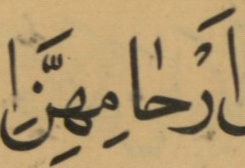 اَرْحٰامِهِنَّ اِ